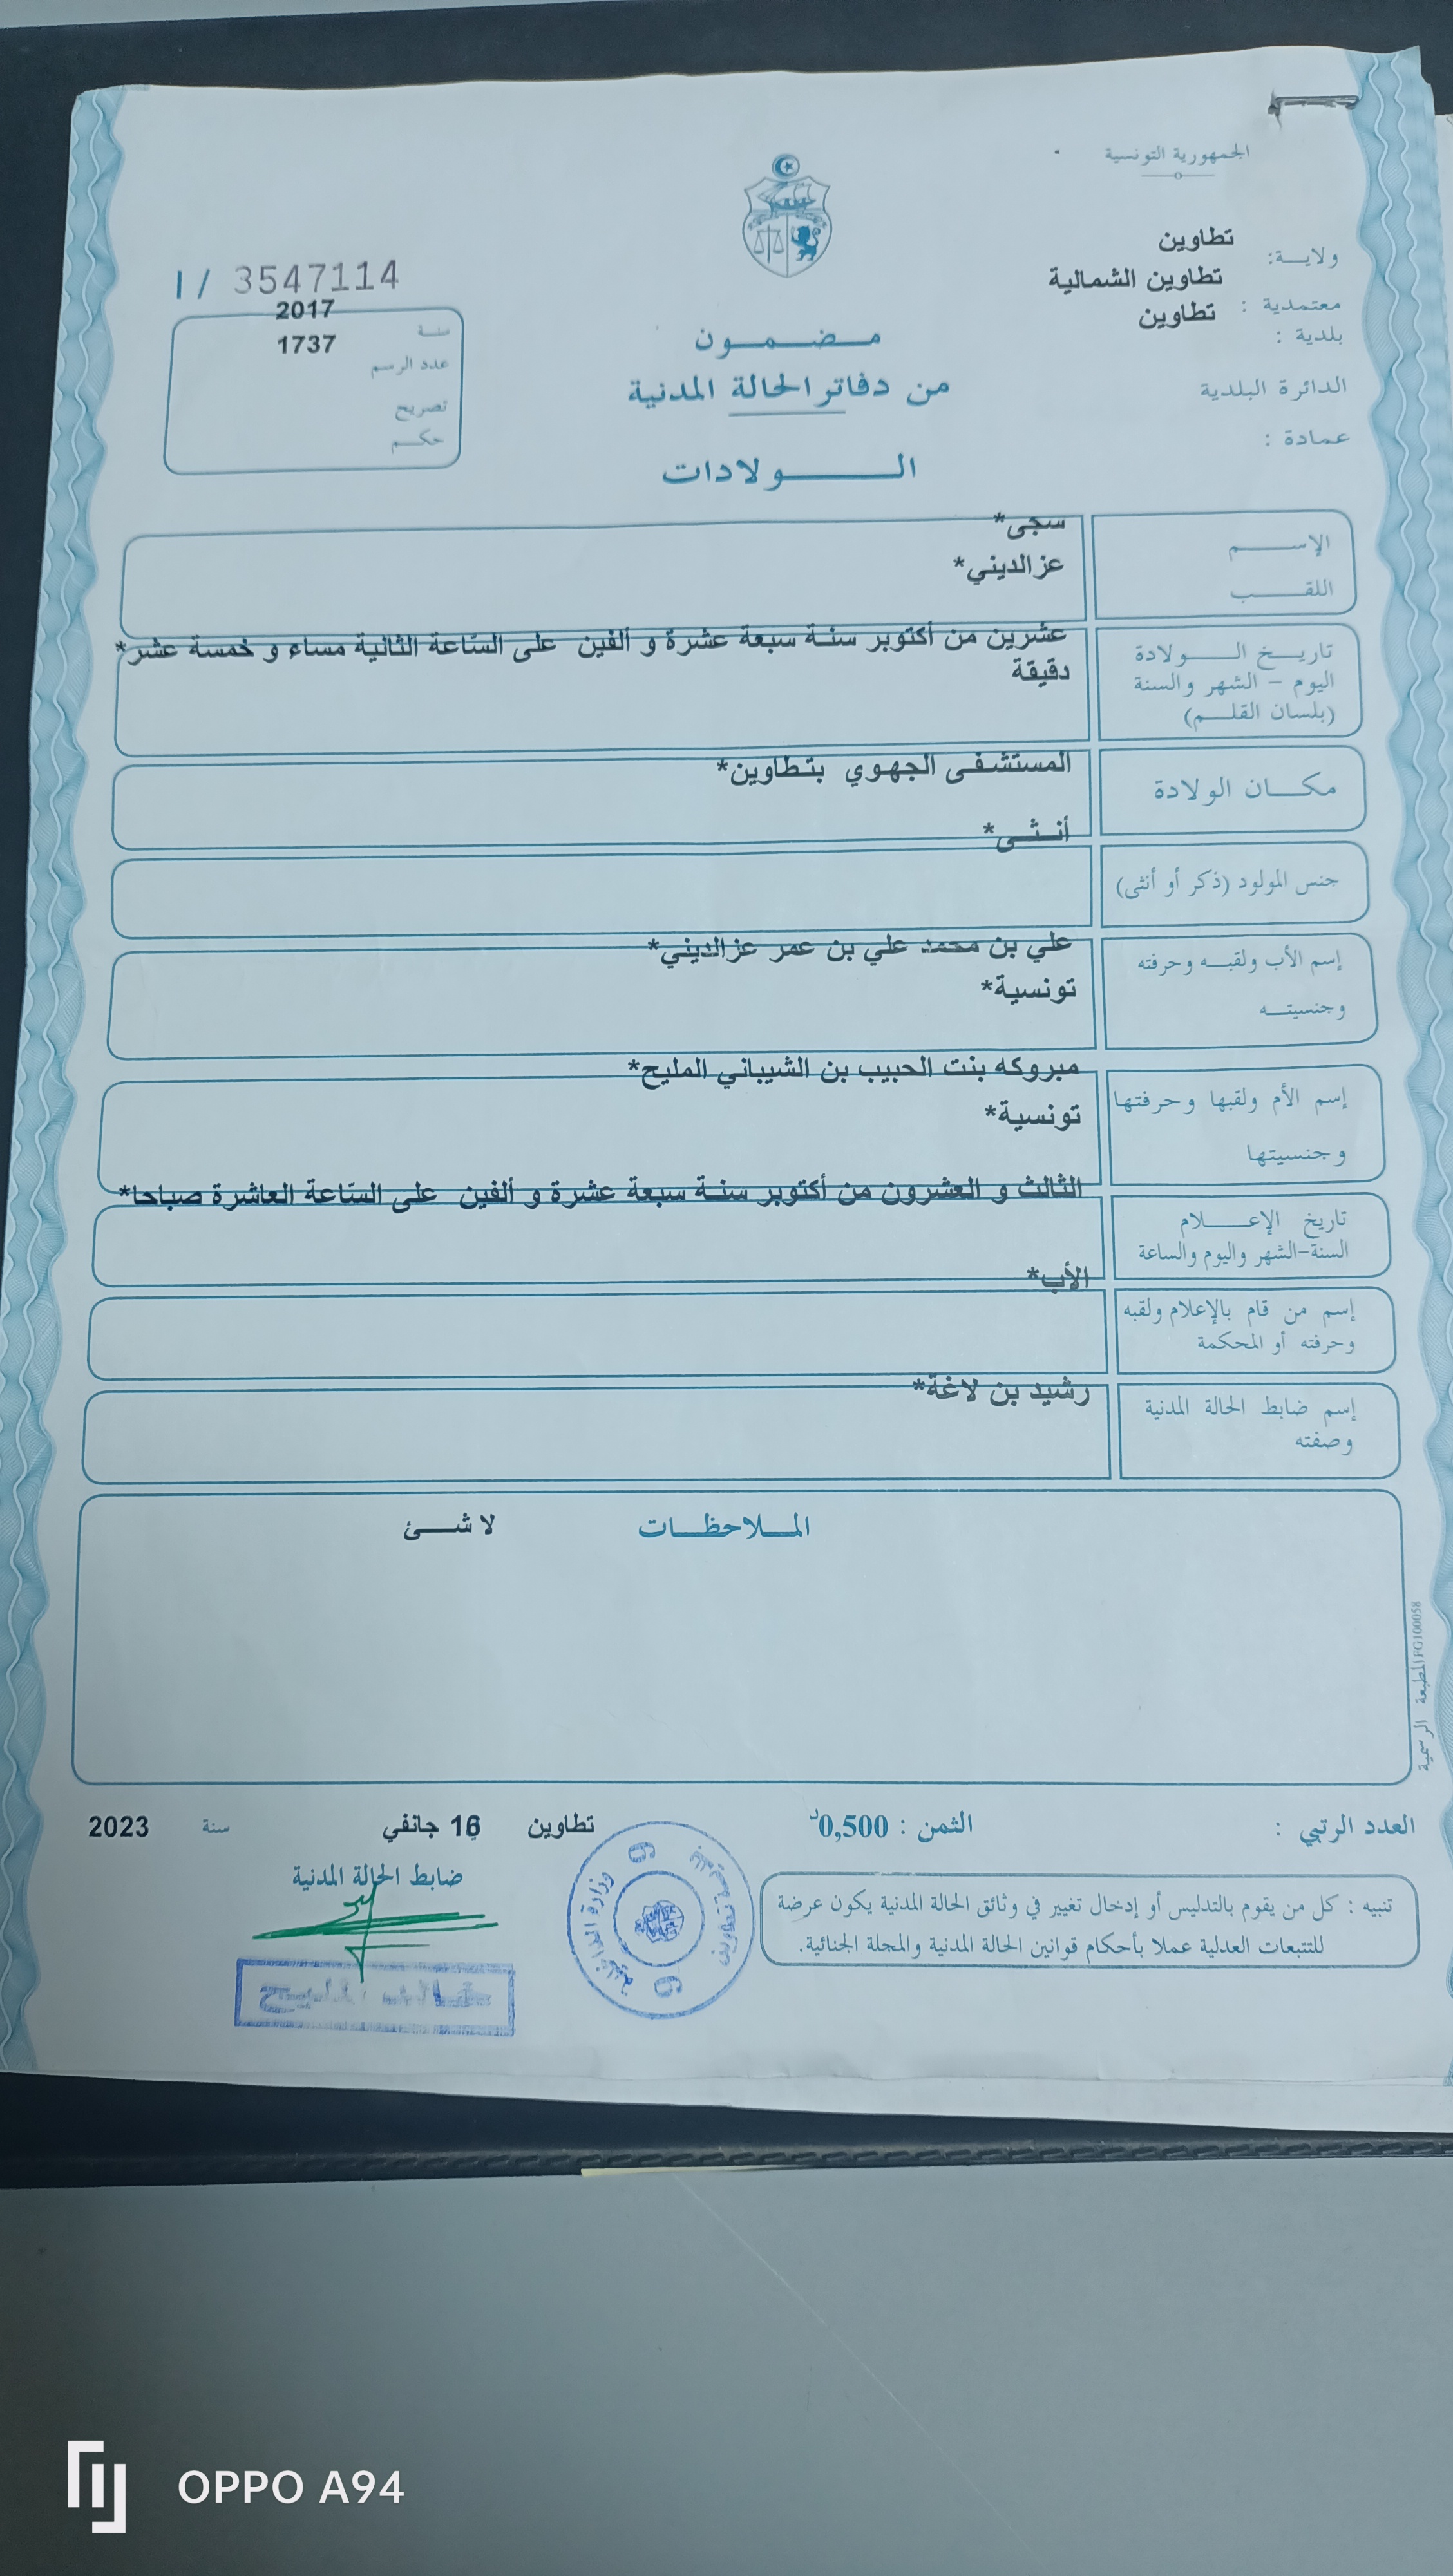 الجمهورية التونسية
ولايـــة: تطاوين
معتمدية : تطاوين الشمالية
بلدية : تطاوين
الدائرة البلدية
عمادة :
I / 3547114
سنة 2017
عدد الرسم 1737
تصريح
حكــم
مـــضـــمـــون
من دفاتر الحالة المدنية
الـــــــولادات
الإســـــــم سجى*
اللقــــــب عزالديني*
تاريــــخ الـــــــولادة
اليوم – الشهر والسنة
(بلسان القلـــم)
عشرين من أكتوبر سنة سبعة عشرة و ألفين على السّاعة الثانية مساء و خمسة عشر*
دقيقة
مكــــان الولادة
المستشفى الجهوي بتطاوين*
أنــثــى*
جنس المولود (ذكر أو أنثى)
إسم الأب ولقبــه وحرفته
وجنسيتــه
علي بن محمد علي بن عمر عزالديني*
تونسية*
إسم الأم ولقبها وحرفتها
وجنسيتها
مبروكه بنت الحبيب بن الشيباني المليح*
تونسية*
تاريخ الإعــــــلام
السنة-الشهر واليوم والساعة
الثالث و العشرون من أكتوبر سنة سبعة عشرة و ألفين على السّاعة العاشرة صباحا*
الأب*
إسم من قام بالإعلام ولقبه
وحرفته أو المحكمة
إسم ضابط الحالة المدنية
وصفته
رشيد بن لاغة*
المــلاحظــات لا شــــئ
المطبعة الرسمية FG100058
العدد الرتبي : الثمن : 0,500د تطاوين 16 جانفي سنة 2023
ضابط الحالة المدنية
تنبيه : كل من يقوم بالتدليس أو إدخال تغيير في وثائق الحالة المدنية يكون عرضة
للتتبعات العدلية عملا بأحكام قوانين الحالة المدنية والمجلة الجنائية.
وزارة الداخلية
6
6
OPPO A94